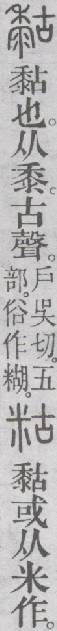 𪏻黏也。从黍。古聲。戶吳切。五部。俗作糊。䊀𪏻或从米作。